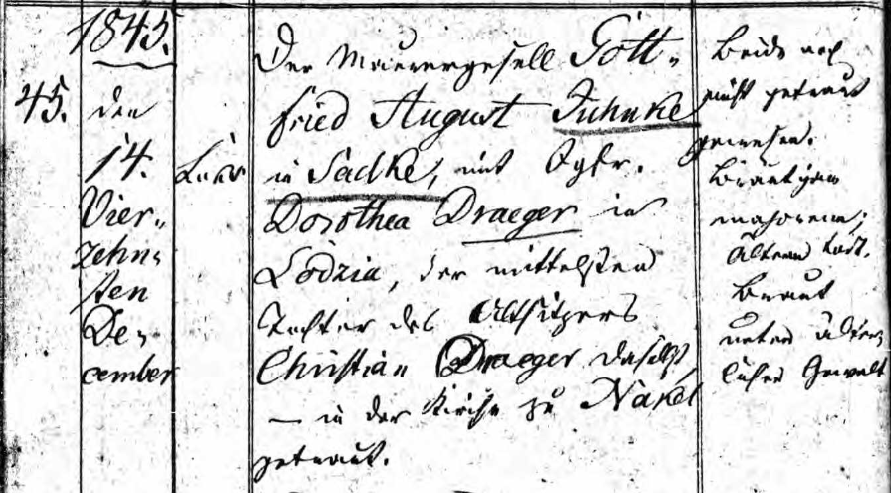 1845.
45. den
14.
Vier-
zehn-
ten
De-
cember
Der Maurergesell Gott-
fried August Juhnke
in Sadke, mit Igfr.
Dorothea Draeger in
Lodzia, der mittelsten
Tochter des Altsitzers
Christian Draeger daselbst,
— in der Kirche zu Nakel
getraut.
Beide noch
nicht getraut
gewesen.
Bräutigam
majorenn;
Ältern todt.
Braut
unter älter-
licher Gewalt